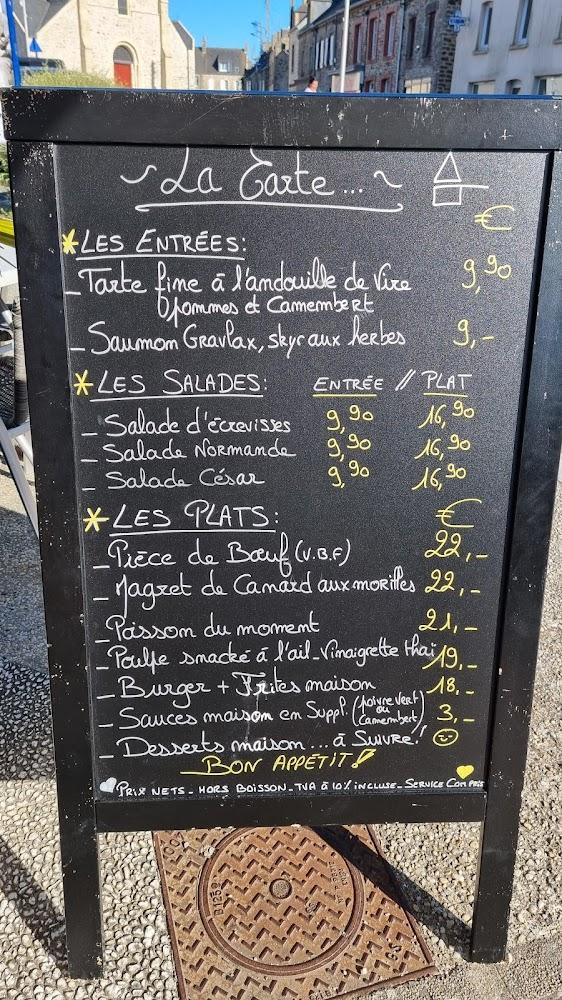 ~ La Carte... ~
€
* LES ENTRÉES:
- Tarte fine à l'andouille de Vire 9,90
pommes et Camembert
- Saumon Gravlax, skyr aux herbes 9,-
* LES SALADES: ENTRÉE // PLAT
- Salade d'écrevisses 9,90 16,90
- Salade Normande 9,90 16,90
- Salade César 9,90 16,90
* LES PLATS: €
- Pièce de Bœuf (V.B.F) 22,-
- Magret de Canard aux morilles 22,-
- Poisson du moment 21,-
- Poulpe snacké à l'ail - Vinaigrette thaï 19,-
- Burger + Frites maison 18,-
- Sauces maison en Suppl. (Poivre vert ou Camembert) 3,-
- Desserts maison... à SUIVRE!
BON APPÉTIT!
PRIX NETS - HORS BOISSON - TVA à 10% INCLUSE - SERVICE COMPRIS